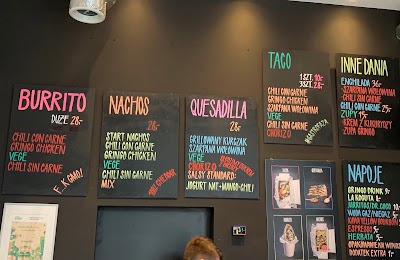 BURRITO
DUŻE 28.-
CHILI CON CARNE
GRINGO CHICKEN
VEGE
CHILI SIN CARNE
NACHOS
28.-
START NACHOS
CHILI CON CARNE
GRINGO CHICKEN
VEGE
CHILI SIN CARNE
MIX
SOS CHEDDAR
QUESADILLA
28.-
GRILLOWANY KURCZAK
SZARPANA WOŁOWINA
VEGE
CHORIZO
SALSY STANDARD:
JOGURT NAT+MANGO-CHILI
TACO
1SZT. 10.-
3SZT. 28.-
CHILI CON CARNE
GRINGO CHICKEN
SZARPANA WOŁOWINA
VEGE
CHILI SIN CARNE
CHORIZO
INNE DANIA
ENCHILADA
SZARPANA WOŁOWINA
CHILI SIN CARNE
CHILI CON CARNE 25.-
ZUPY 15.-
KREM Z KUKURYDZY
ZUPA GRINGO
NAPOJE
GRINGO DRINK
LA RDOUTA
WODA GAZ/NIEGAZ
ESPRESSO
HERBATA
OPAKOWANIE NA WYNOS
DODATEK EXTRA